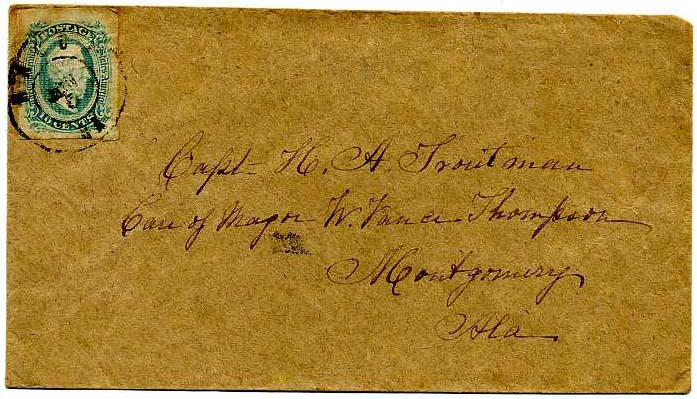 POSTAGE
10 CENTS
Capt H. A. Troutman
Care of Major W. Vance Thompson
Montgomery
Ala